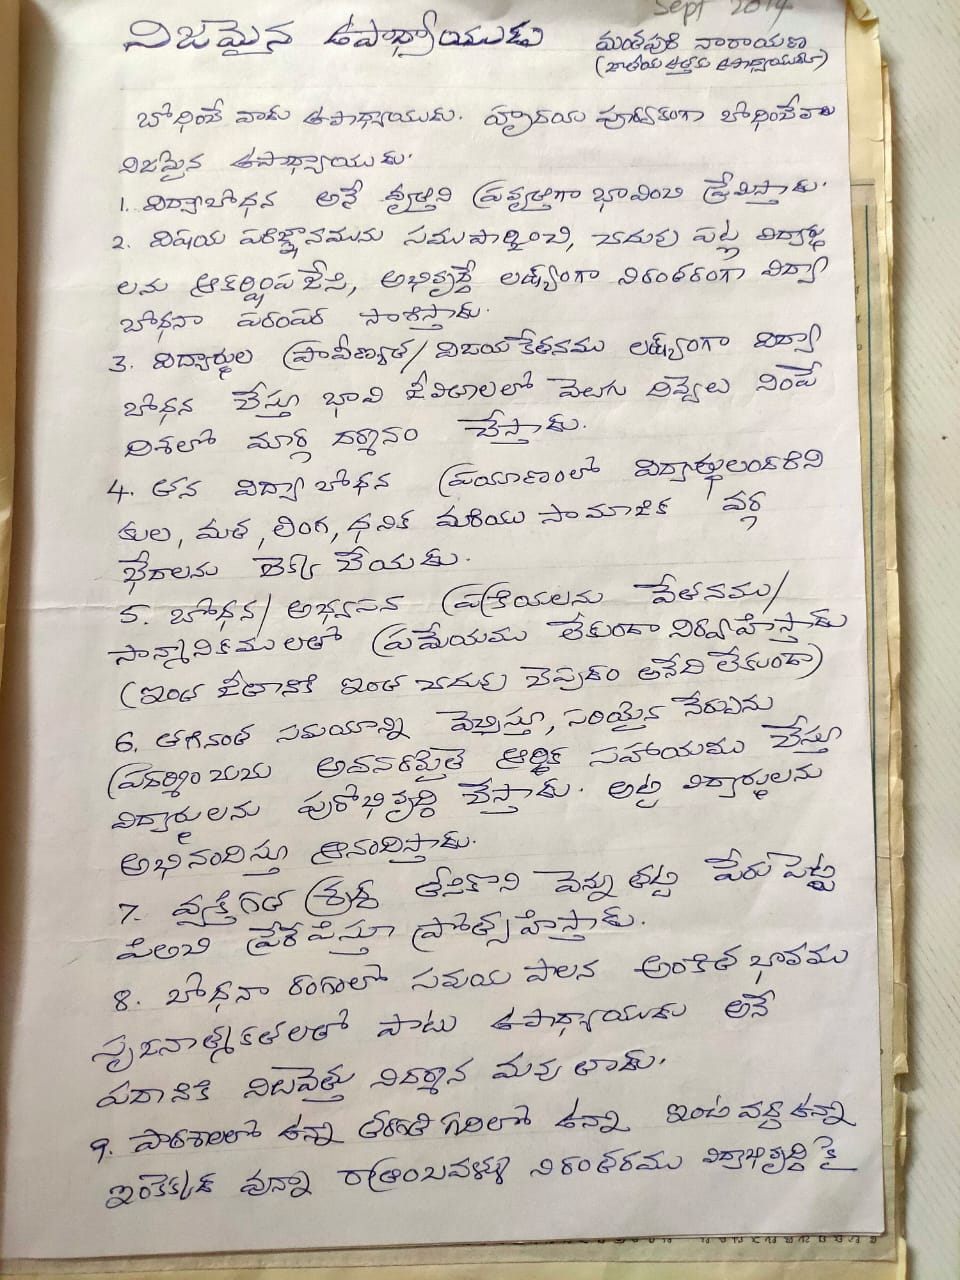 Sept 2019
నిజమైన ఉపాధ్యాయుడు మంతపురి నారాయణ
(జాతీయ ఉత్తమ ఉపాధ్యాయుడు)
బోధించే వాడు ఉపాధ్యాయుడు. హృదయ పూర్వకంగా బోధించేవాడు
నిజమైన ఉపాధ్యాయుడు.
1. విద్యాబోధన అనే వృత్తిని ప్రవృత్తిగా భావించి ప్రేమిస్తాడు.
2. విషయ పరిజ్ఞానమును సముపార్జించి, చదువు పట్ల విద్యార్థు
లను ఆకర్షింపజేసి, అభివృద్ధే లక్ష్యంగా నిరంతరంగా విద్యా
బోధనా పరంపర సాగిస్తాడు.
3. విద్యార్థుల ప్రావీణ్యత/విజయకేతనము లక్ష్యంగా విద్యా
బోధన చేస్తూ భావి జీవితాలలో వెలుగు దివ్వెలు నింపే
దిశలో మార్గ దర్శనం చేస్తాడు.
4. తన విద్యా బోధన ప్రయాణంలో విద్యార్థులందరిని
కుల, మత, లింగ, ధనిక మరియు సామాజిక వర్గ
భేదాలను లెక్క చేయడు.
5. బోధన/అభ్యసన ప్రక్రియలను వేతనము/
సాన్మానికములతో ప్రమేయము లేకుండా నిర్వహిస్తాడు
(ఇంత జీతానికి ఇంత చదువు చెప్పడం అనేది లేకుండా)
6. తగినంత సమయాన్ని వెచ్చిస్తూ, సరియైన నేర్పును
ప్రదర్శించుచు అవసరమైతే ఆర్థిక సహాయము చేస్తూ
విద్యార్థులను పురోభివృద్ధి చేస్తాడు. అట్టి విద్యార్థులను
అభినందిస్తూ ఆనందిస్తాడు.
7. వ్యక్తిగత శ్రద్ధ తీసికొని వెన్ను తట్టి పేరు పెట్టి
పిలిచి ప్రేరేపిస్తూ ప్రోత్సహిస్తాడు.
8. బోధనా రంగంలో సమయ పాలన అంకిత భావము
సృజనాత్మకతలతో పాటు ఉపాధ్యాయుడు అనే
పదానికి నిలువెత్తు నిదర్శన మవుతాడు.
9. పాఠశాలలో ఉన్నా తరగతి గదిలో ఉన్నా ఇంటి వద్ద ఉన్నా
ఇంకెక్కడ వున్నా రాత్రింబవళ్ళు నిరంతరము విద్యాభివృద్ధి కై